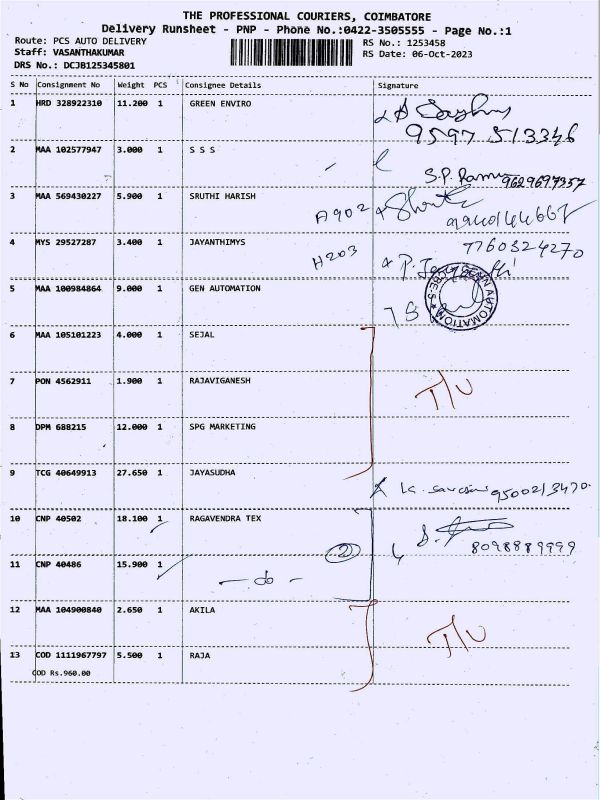 THE PROFESSIONAL COURIERS, COIMBATORE
Delivery Runsheet - PNP - Phone No.:0422-3505555 - Page No.:1
Route: PCS AUTO DELIVERY RS No.: 1253458
Staff: VASANTHAKUMAR RS Date: 06-Oct-2023
DRS No.: DCJB125345801
S No Consignment No Weight PCS Consignee Details Signature
1 HRD 328922310 11.200 1 GREEN ENVIRO
9597 513346
2 MAA 102577947 3.000 1 S S S
S.P. Ramu 9629697357
3 MAA 569430227 5.900 1 SRUTHI HARISH A902
4 MYS 29527287 3.400 1 JAYANTHIMYS H203 7760324270
5 MAA 100984864 9.000 1 GEN AUTOMATION
6 MAA 105101223 4.000 1 SEJAL
7 PON 4562911 1.900 1 RAJAVIGANESH T/U
8 DPM 688215 12.000 1 SPG MARKETING
9 TCG 40649913 27.650 1 JAYASUDHA
9500213470
10 CNP 40502 18.100 1 RAGAVENDRA TEX
2 8098889999
11 CNP 40486 15.900 1
- do -
12 MAA 104900840 2.650 1 AKILA T/U
13 COD 1111967797 5.500 1 RAJA
COD Rs.960.00